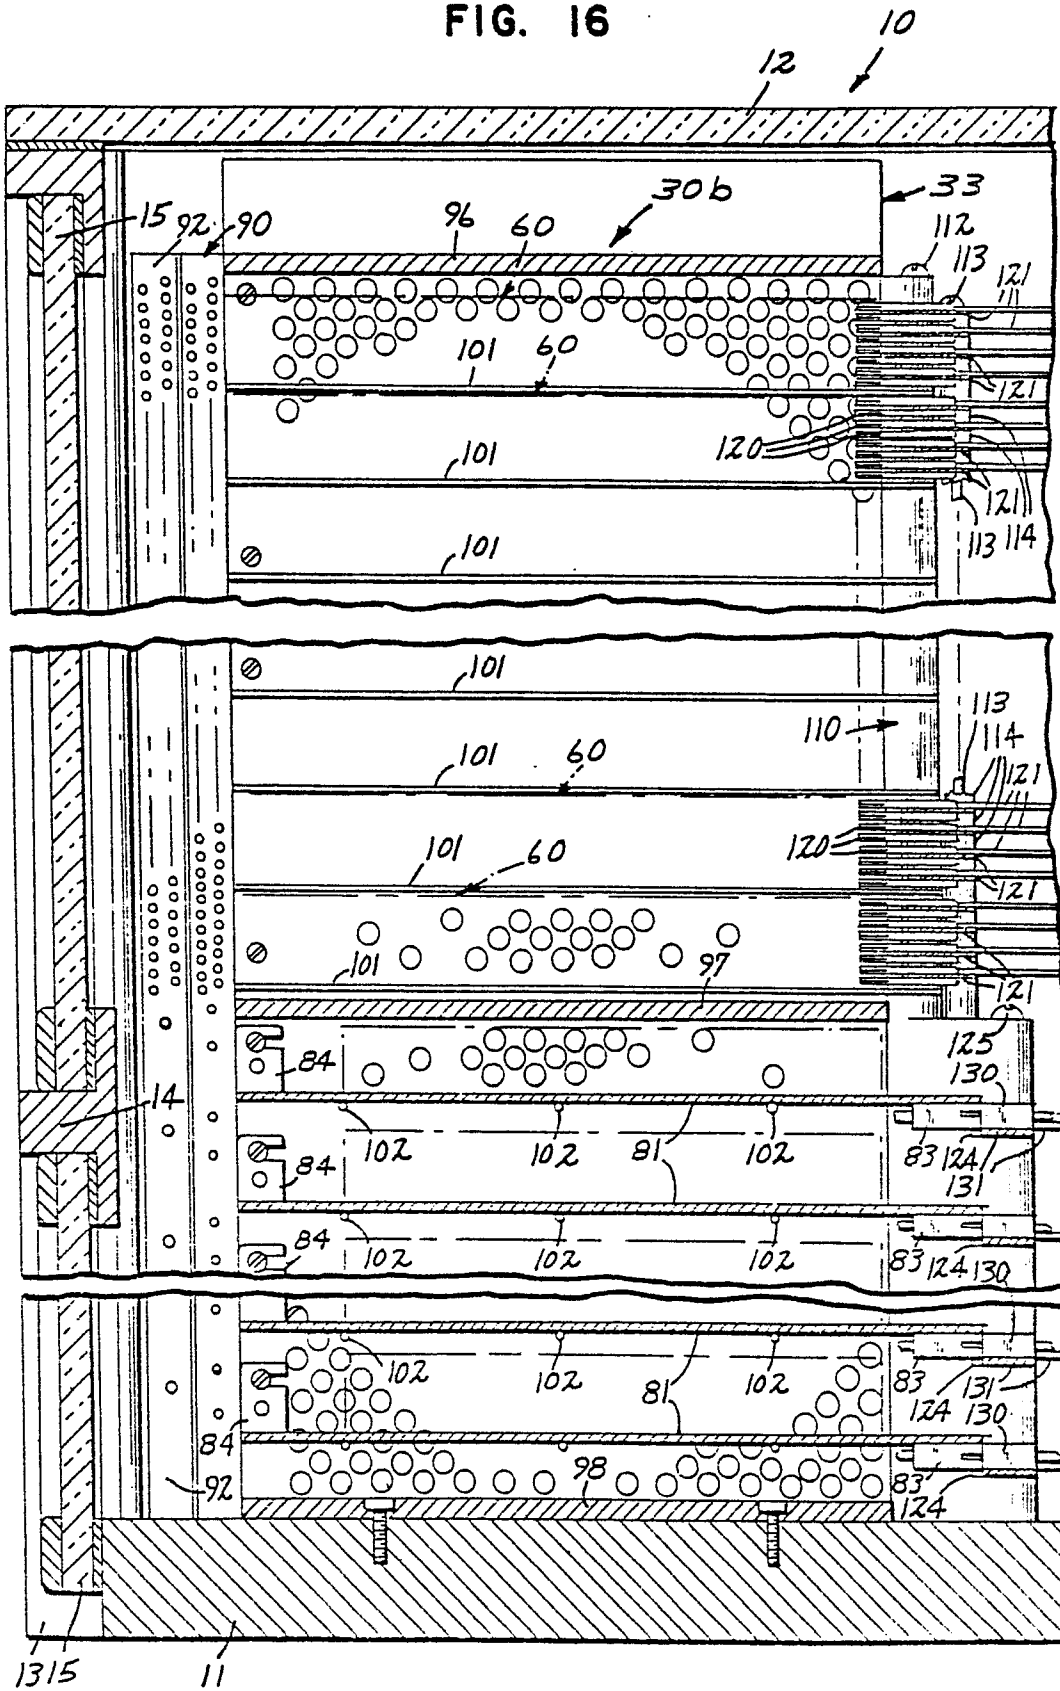 FIG. 16
10
12
30b
33
15
92
90
96
60
112
113
121
101
60
121
120
101
121
113
114
101
101
110
113
114
101
60
121
120
101
60
121
101
97
121
84
125
130
14
102
102
81
102
83
124
131
84
102
84
102
102
83
124
130
102
102
81
102
83
124
131
130
84
92
98
83
124
13
15
11